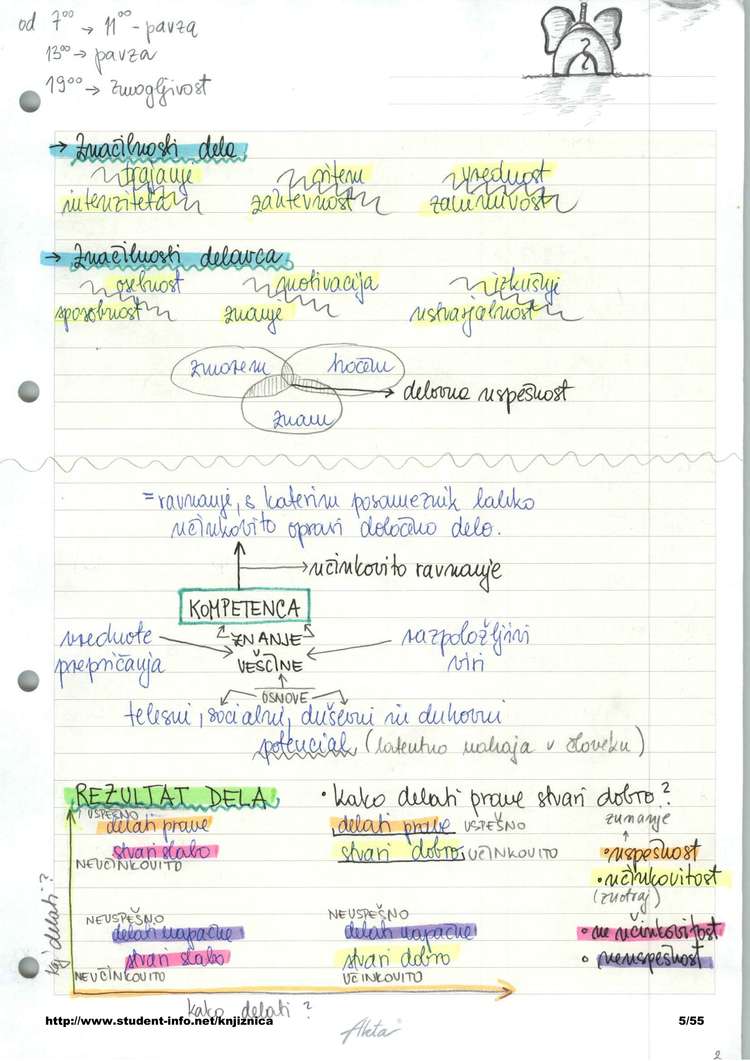 od 7⁰⁰ → 11⁰⁰ - pavza
13⁰⁰ → pavza
19⁰⁰ → zmogljivost
→ Značilnosti dela
trajanje ritem vrednost
intenziteta zahtevnost zanimivost
→ Značilnosti delavca
osebnost motivacija izkušnje
sposobnost znanje ustvarjalnost
zmorem hočem
→ delovna uspešnost
znam
= ravnanje, s katerim posameznik lahko
učinkovito opravi določeno delo.
→ učinkovito ravnanje
KOMPETENCA
vrednote ZNANJE razpoložljivi
prepričanja VEŠČINE viri
OSNOVE
telesni, socialni, duševni in duhovni
potencial (latentno nahaja v človeku)
REZULTAT DELA • kako delati prave stvari dobro?
USPEŠNO zunanje
delati prave delati prave USPEŠNO
stvari slabo stvari dobro UČINKOVITO • uspešnost
NEUČINKOVITO • učinkovitost
(znotraj)
NEUSPEŠNO NEUSPEŠNO
delati napačne delati napačne • ne učinkovitost
stvari slabo stvari dobro • neuspešnost
NEUČINKOVITO UČINKOVITO
kaj delati?
kako delati?
http://www.student-info.net/knjiznica 5/55
Akta
2